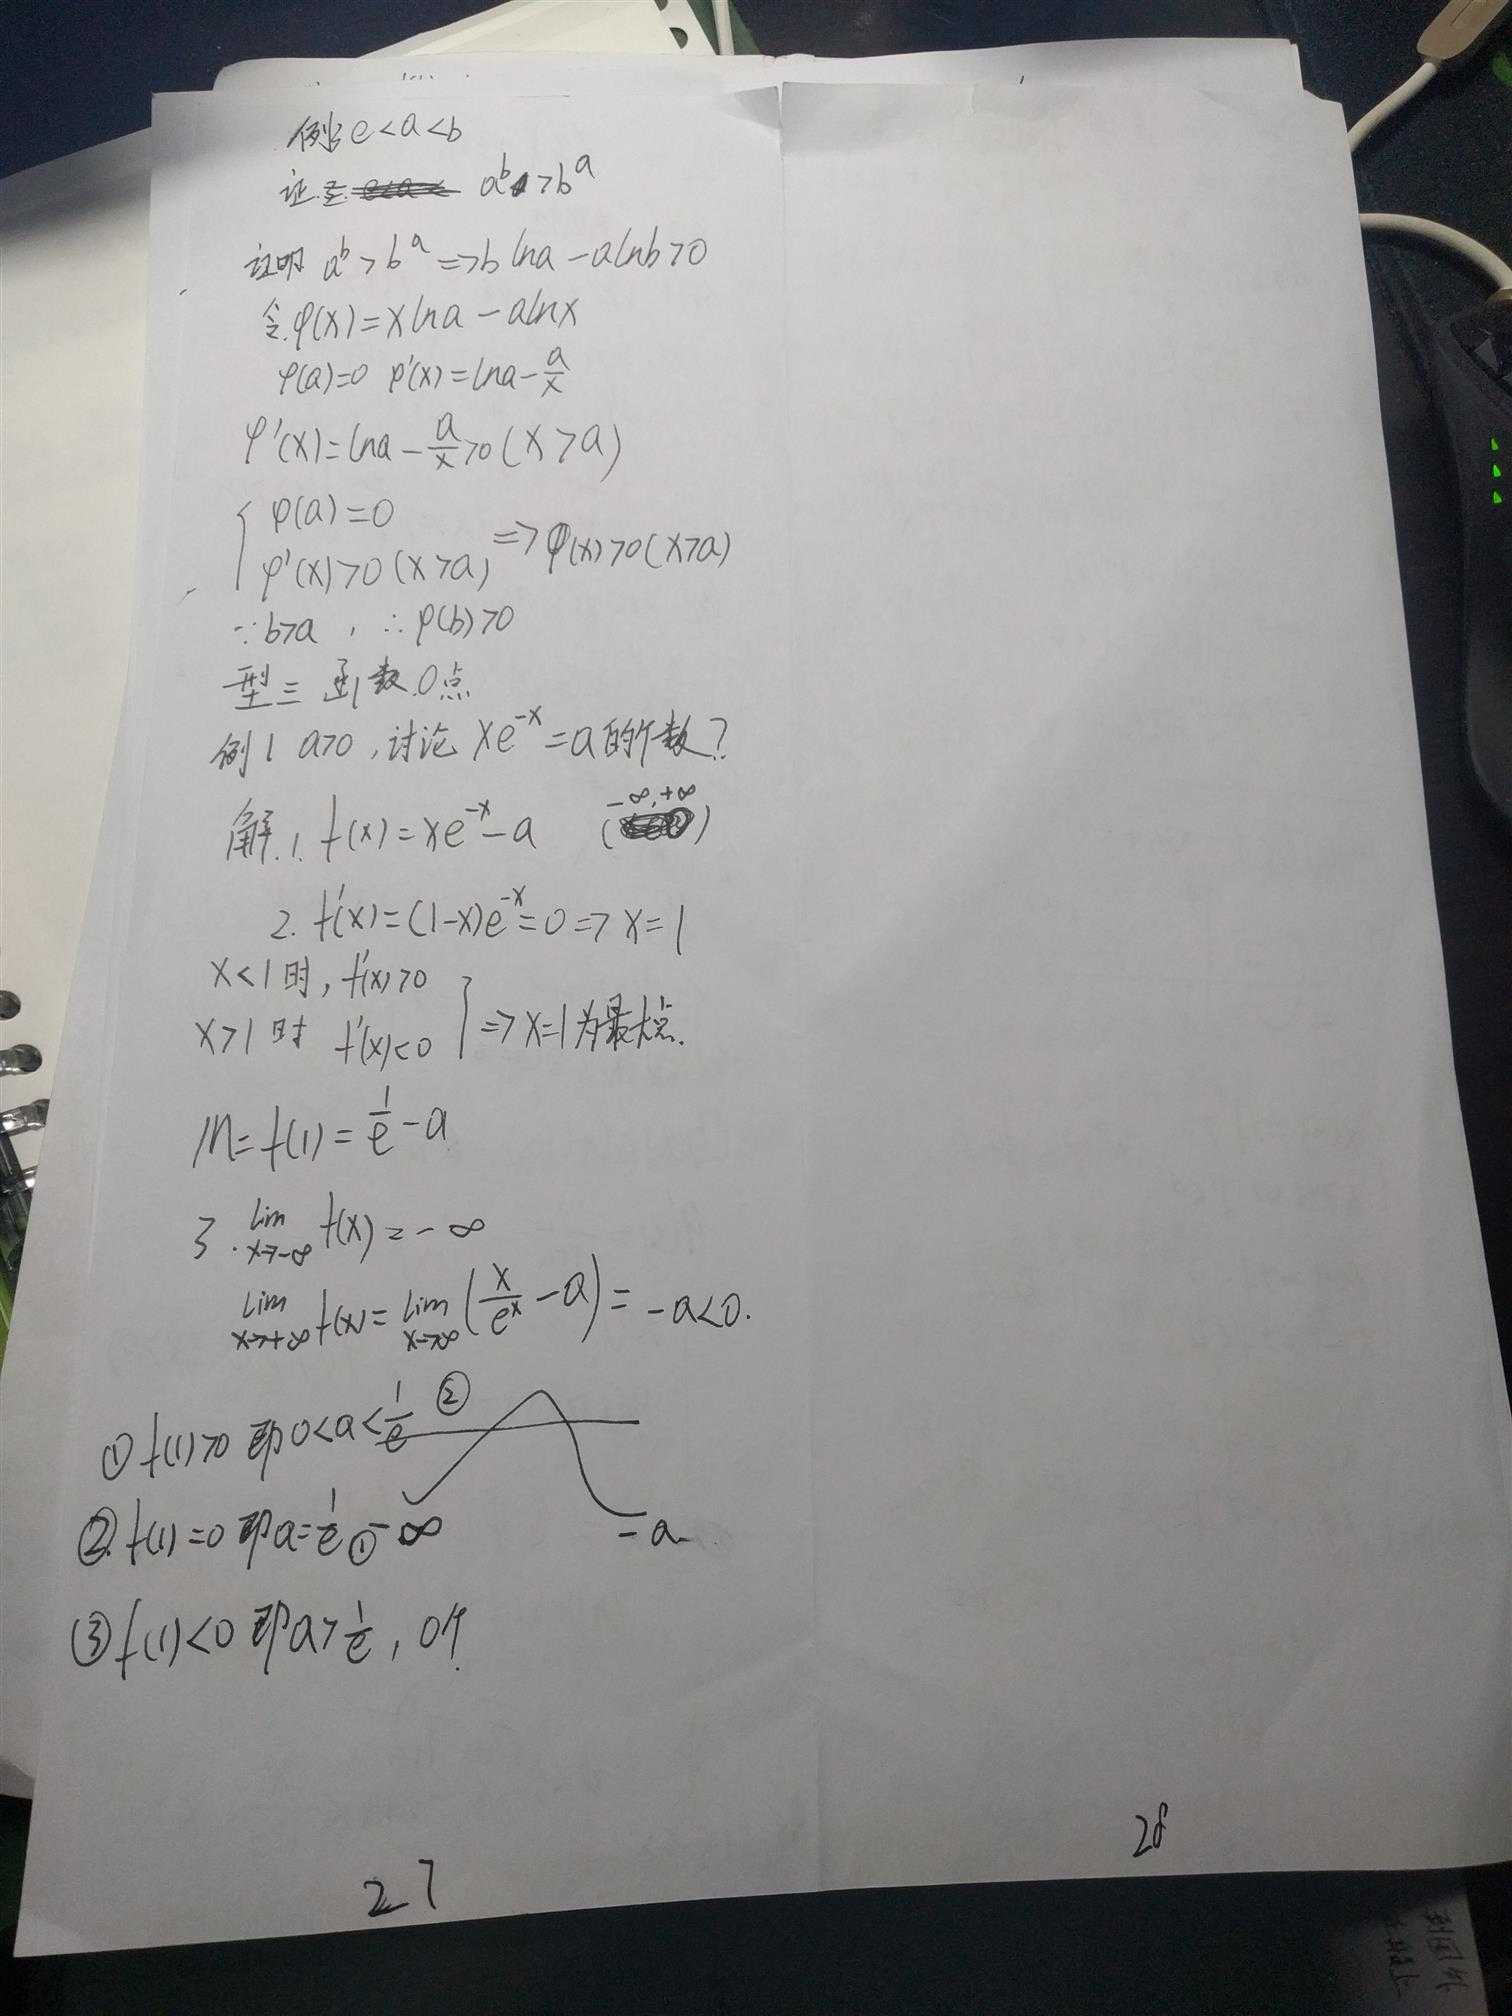 例3 e<a<b
证: a^b>b^a
证明 a^b>b^a=>b lna-alnb>0
令.φ(x)=xlna-alnx
φ(a)=0 φ'(x)=lna-a/x
φ'(x)=lna-a/x>0(x>a)
φ(a)=0
φ'(x)>0(x>a) => φ(x)>0(x>a)
∵b>a, ∴φ(b)>0
型三 函数.0点
例1 a>0,讨论 xe^-x=a的个数?
解.1. f(x)=xe^-x-a (-∞,+∞)
2. f'(x)=(1-x)e^-x=0=>x=1
x<1时, f'(x)>0
x>1时 f'(x)<0 =>x=1为最大点.
m=f(1)=1/e-a
3. lim x→-∞ f(x)=-∞
lim x→+∞ f(x)=lim x→∞ (x/e^x-a)=-a<0.
①f(1)>0 即0<a<1/e ②
②.f(1)=0即a=1/e ① -∞
-a
③f(1)<0即a>1/e, 0个.
27
28